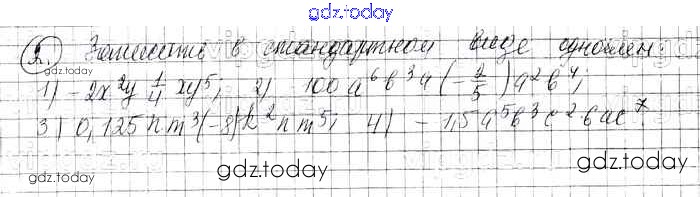 gdz.today
2. Запишите в стандартном виде одночлен:
1) -2x²y 1/4 xy⁵; 2) -100a⁶b³a(-2/5)a²b⁴;
3) 0,125nm³(-8)k²nm⁵; 4) -1,5a⁵b³c²bac⁷.
gdz.today
gdz.today
gdz.today
gdz.today